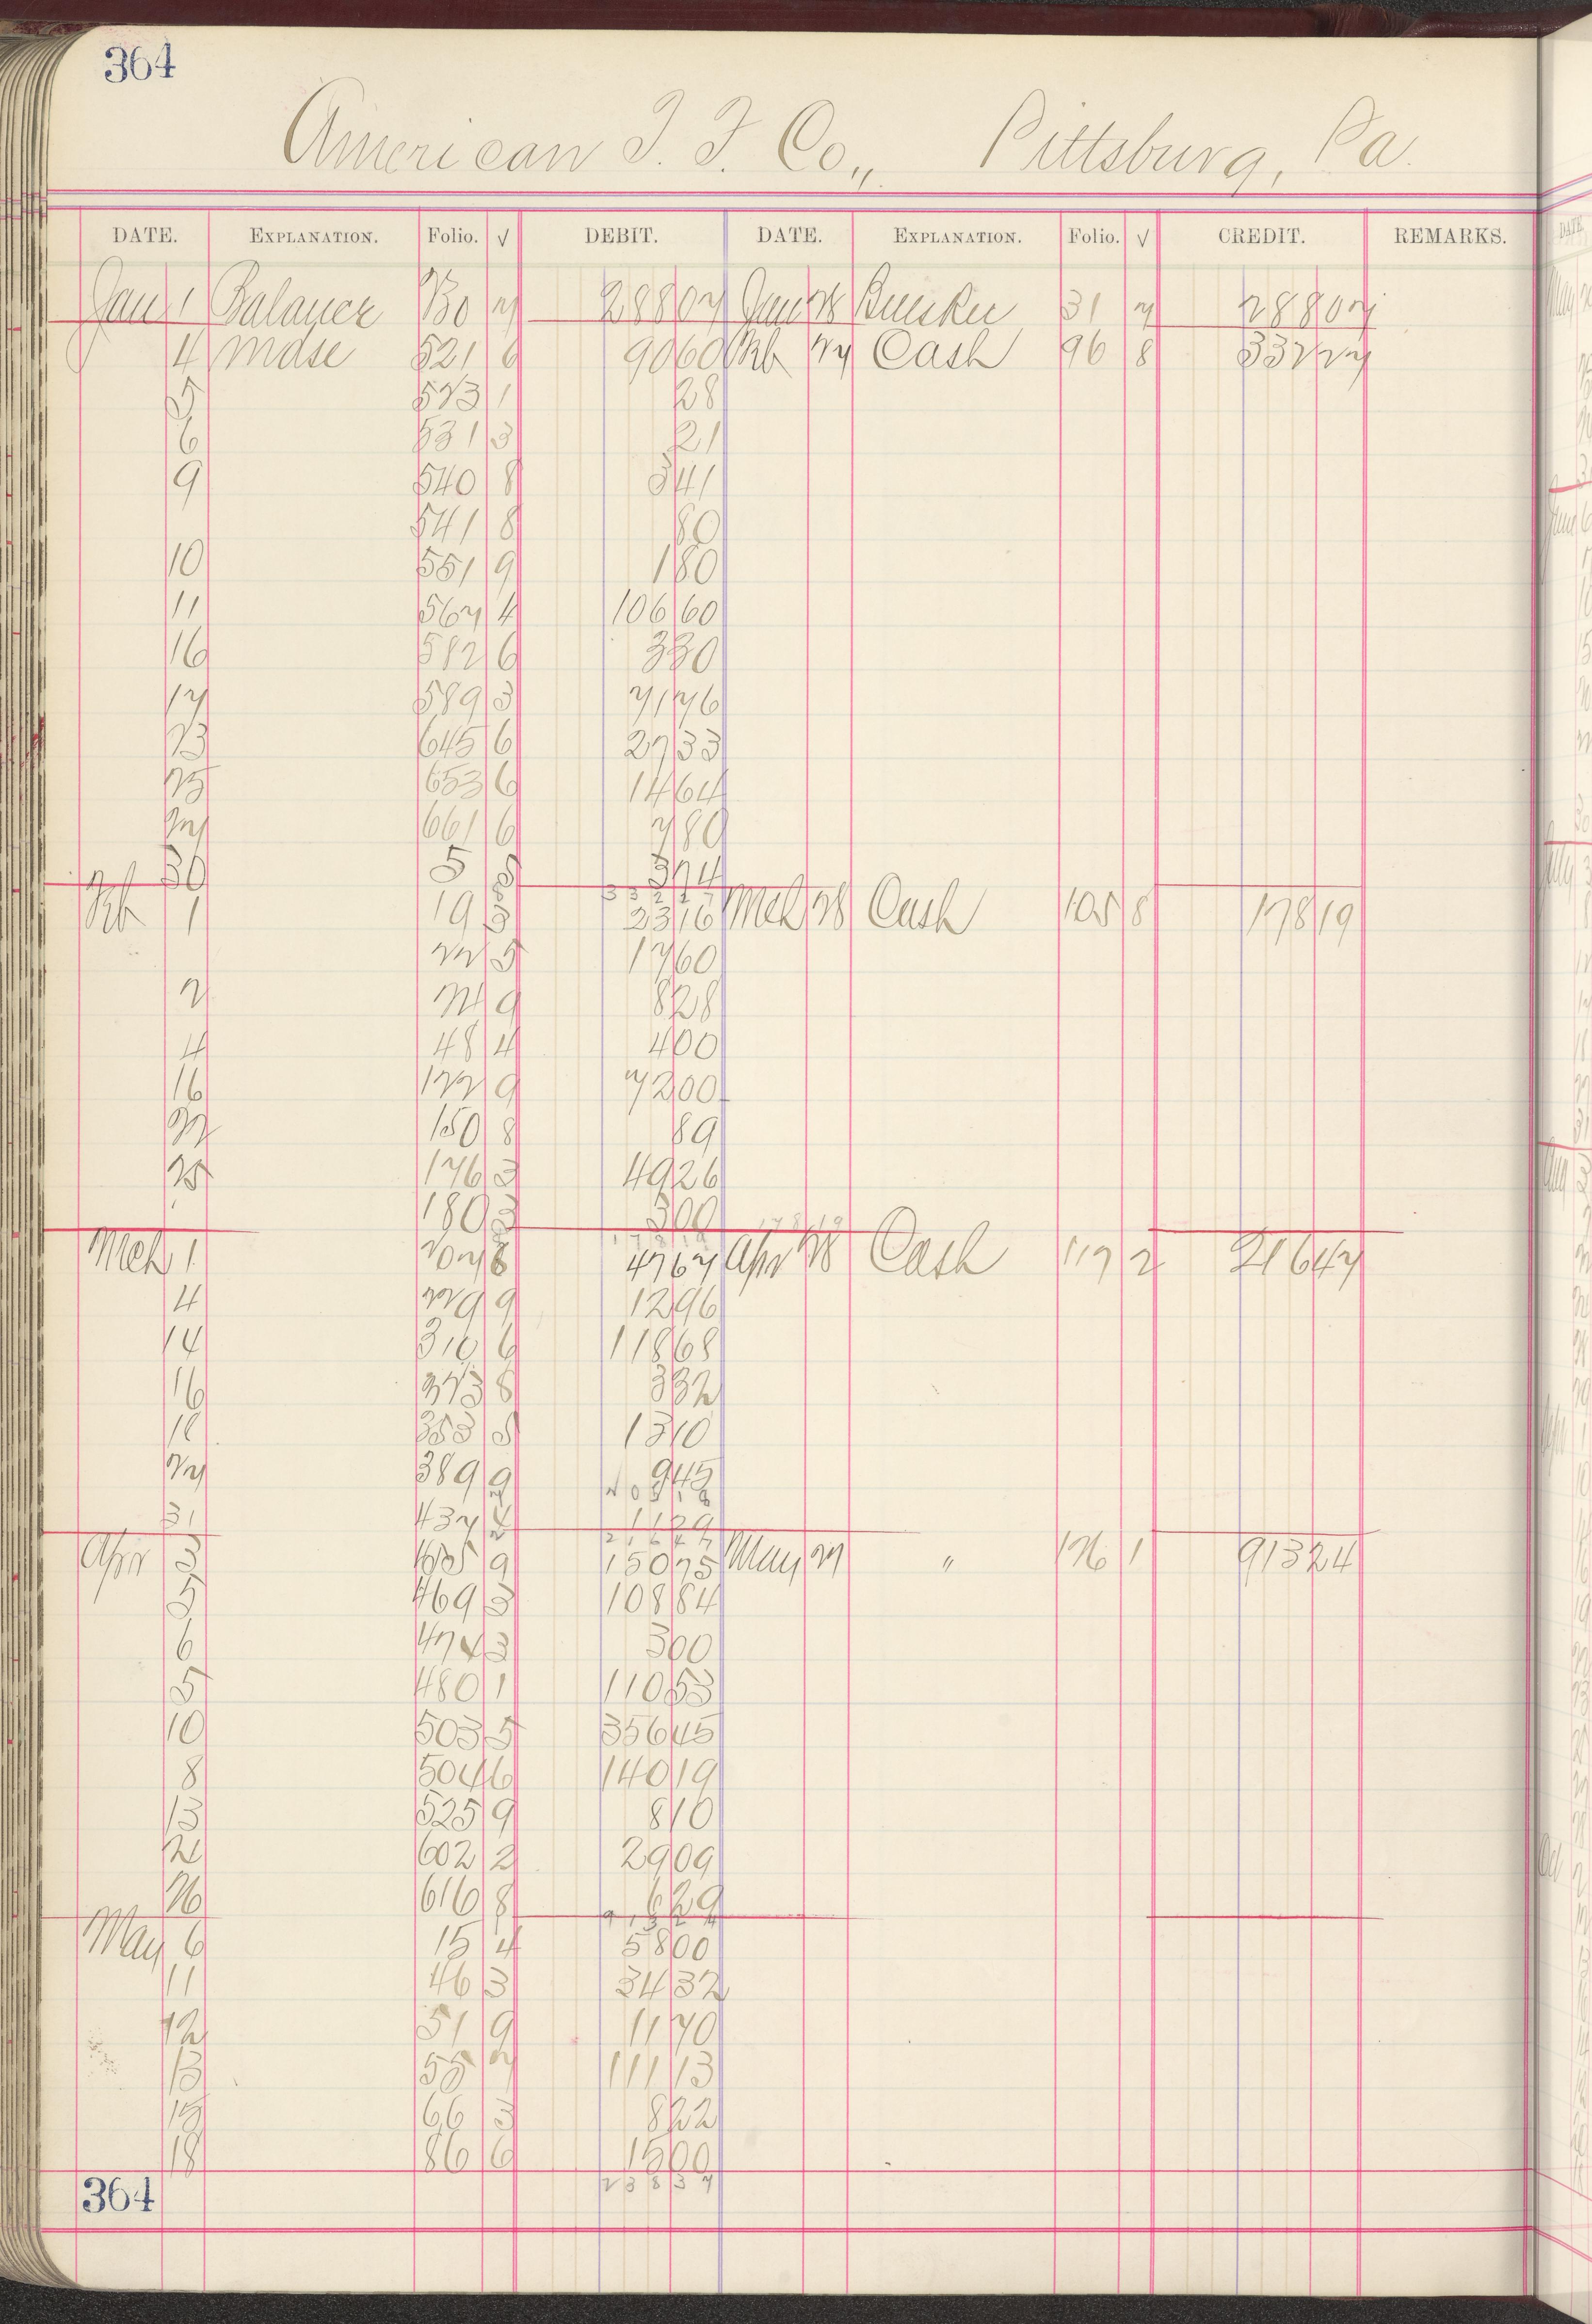 364
American T. F. Co., Pittsburg, Pa.
DATE. EXPLANATION. Folio. √ DEBIT. DATE. EXPLANATION. Folio. √ CREDIT. REMARKS.
Jan 1 Balance 130 7 288 07 Jan 28 31 7 288 07
4 Mdse 521 6 90 60 Feb 27 Cash 96 8 332 27
5 523 1 28
6 531 3 21
9 540 8 3 41
541 8 80
10 551 9 1 80
11 567 4 106 60
16 582 6 3 30
17 589 3 71 76
23 645 6 27 33
25 653 6 14 64
27 661 6 7 80
30 5 3 74
Feb 1 19 3 23 16 Mch 28 Cash 105 8 178 19
22 5 17 60
2 9 8 28
4 48 4 4 00
16 122 9 72 00
150 8 89
25 176 3 49 26
180 3 3 00
178 19
Mch 1 207 8 47 67 Apr 28 Cash 117 2 216 47
4 229 9 12 96
14 310 6 118 68
16 323 8 3 32
18 353 13 10
27 389 9 9 45
31 437 11 29
216 47
Apr 3 9 150 75 May 27 " 126 1 913 24
5 469 3 108 84
6 474 3 3 00
5 480 1 110 53
10 503 5 356 45
8 504 6 140 19
13 525 9 8 10
21 602 2 29 09
26 616 8 6 29
913 24
May 6 15 4 58 00
11 46 3 34 32
12 51 9 11 70
13 55 7 111 13
15 66 3 8 22
18 86 6 15 00
238 37
364